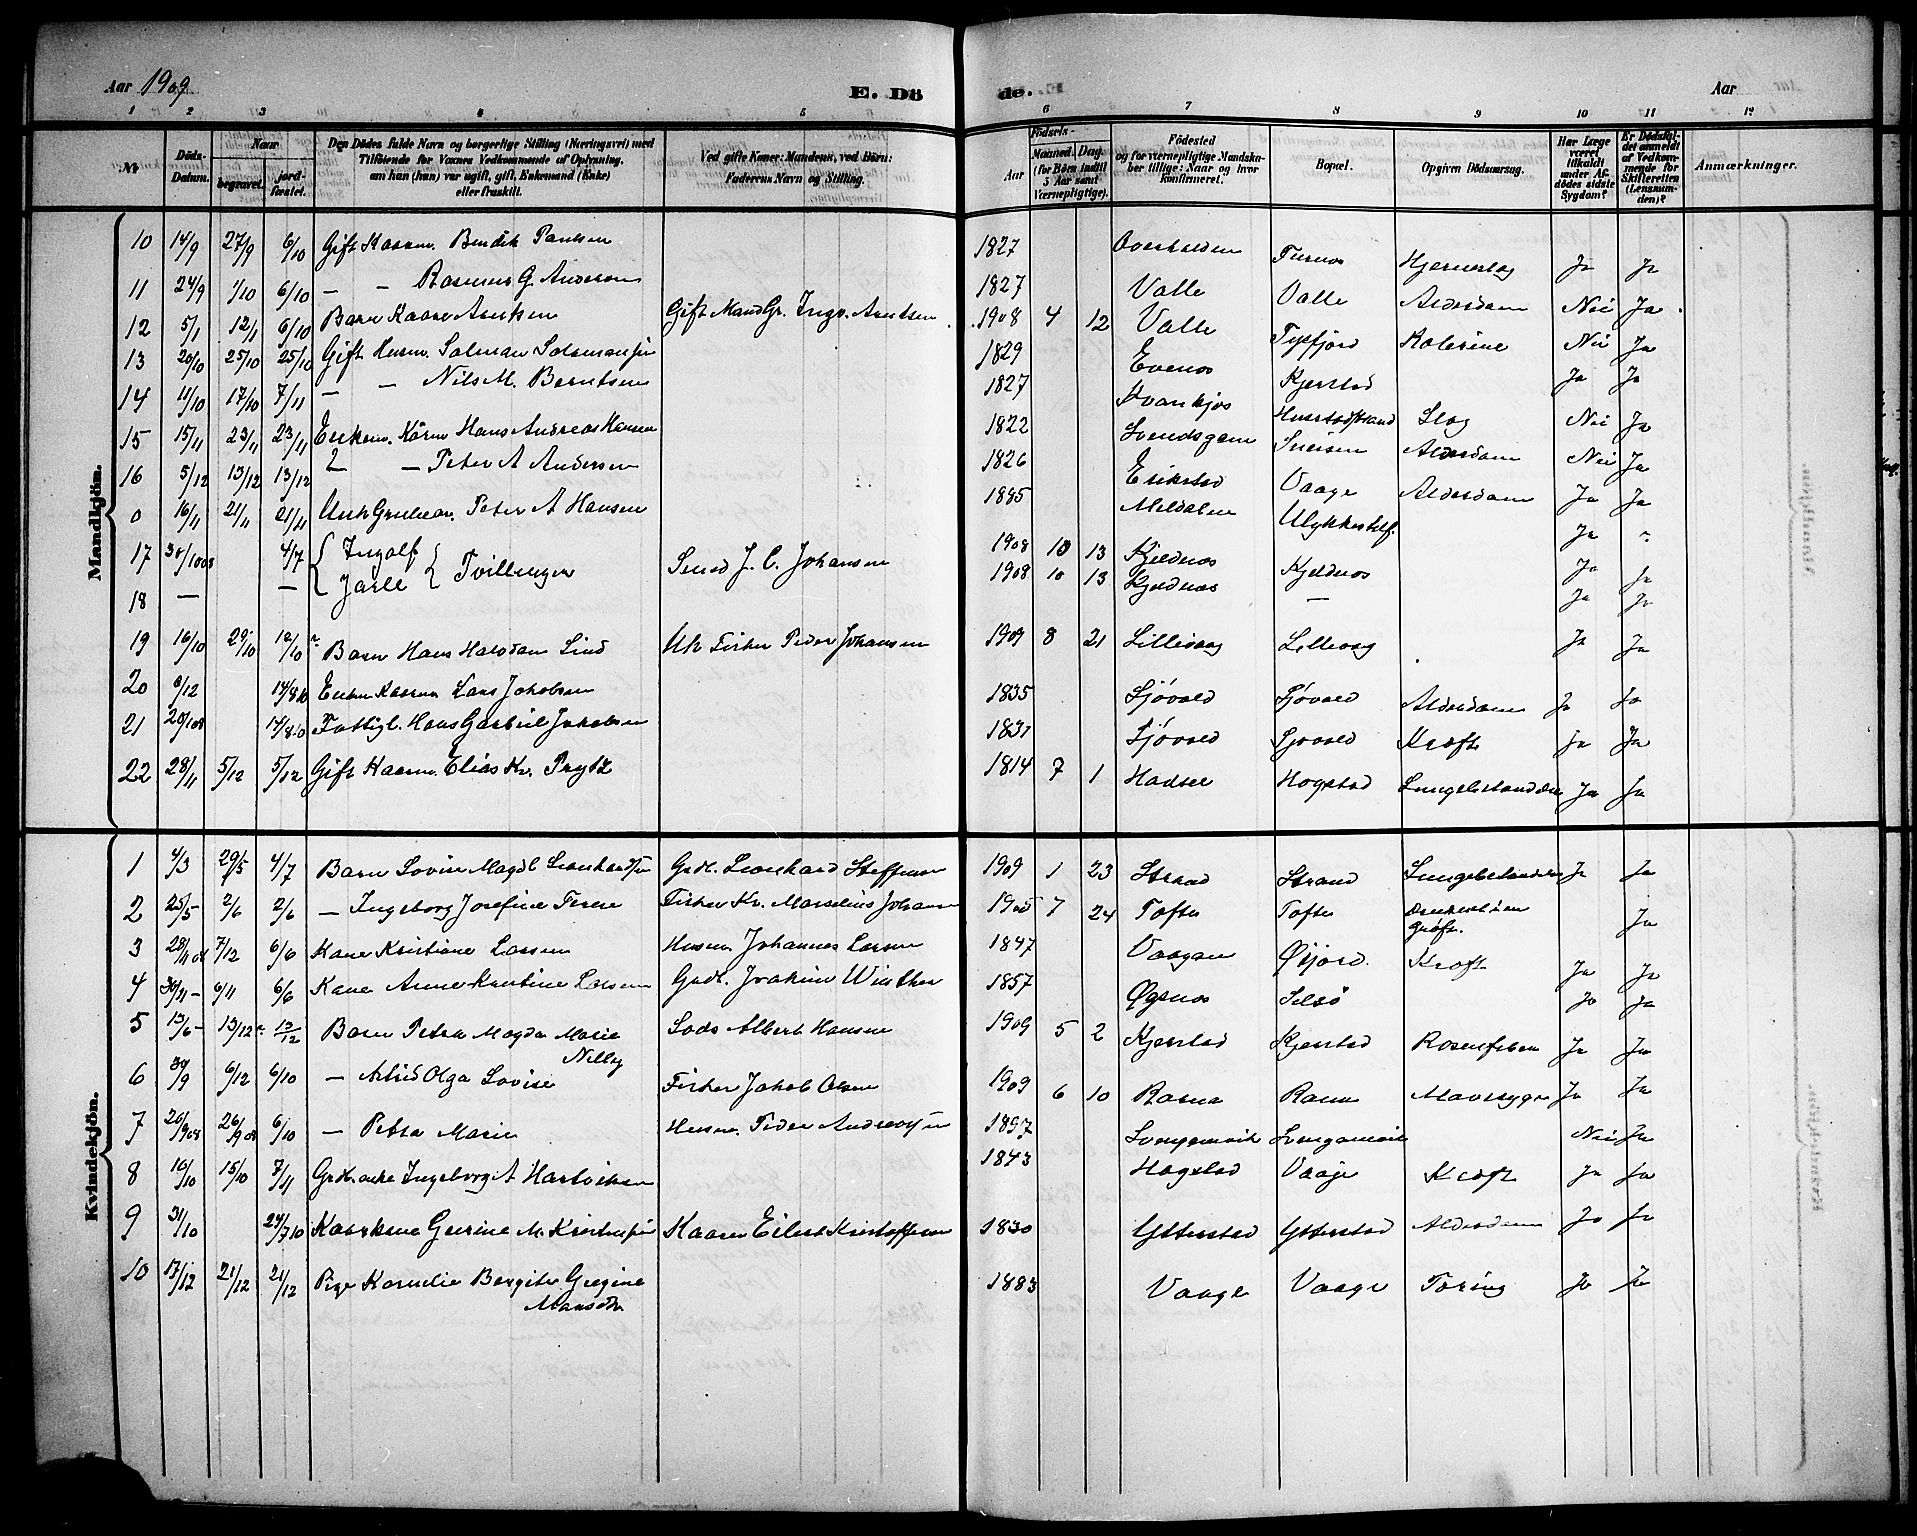 Aar 1909
E. Dö
de.
Aar
1 2 3 4 5 6 7 8 9 10 11 12
Nr.
Döds-Datum.
Naar
begravet.
jordfæstet.
Den Dödes fulde Navn og borgerlige Stilling (Næringsvei) med
Tilföiende for Voxnes Vedkommende af Oplysning,
om han (hun) var ugift, gift, Enkemand (Enke)
eller fraskilt.
Ved gifte Koner: Mandens, ved Börn:
Faderens Navn og Stilling.
Födsels-
Aar
Maaned.
Dag.
(for Börn indtil
5 Aar samt
Værnepligtige).
Födested
og for værnepligtige Mandska-
ber tillige: Naar og hvor
konfirmeret.
Bopæl.
Opgiven Dödsaarsag.
Har Læge
været
tilkaldt
under Af-
dödes sidste
Sygdom?
Er Dödsfal-
det anmeldt
af Vedkom-
mende for
Skifteretten
(Lensman-
den)?
Anmærkninger.
Mandkjön.
10 14/9 27/9 6/10 Gift Kaarm. Bendik Paulsen 1827 Overhalden Turnos Hjerneslag Ja Ja
11 24/9 1/10 6/10 — — Rasmus G. Anderson 1827 Valle Valle Alderdom Nei Ja
12 5/1 12/1 6/10 Barn Kaare Arntsen Gift Mand Gr. Ingv. Arntsen 1908 4 12 Valle
13 20/10 25/10 25/10 Gift Husm. Salman Salamonsen 1829 Evenes Tysfjord Kolerine Nei Ja
14 11/10 17/10 7/11 — — Nils M. Berntsen 1827 Kjerstad Ja Ja
15 15/11 23/11 23/11 Enkem. Kårm Hans Andreas Hansen 1822 Slag Nei Ja
16 5/12 13/12 13/12 — Peter A Andersen 1826 Erikstad Alderdom Nei Ja
0 16/11 21/11 21/11 Peter A Hansen 1885 Meldalen Vaage Alderdom Ja Ja
Ulykkestilf. Ja
17 30/10 08 4/7 { Ingolf { Tvillinger J. C. Johansen 1908 10 13 Kjeldnos Kjeldnos Ja Ja
18 — — { Jarle 1908 10 13 Kjeldnos — Ja Ja
19 16/10 29/10 12/10 Barn Hans Halvdan Lind Uk Fisker Peder Johansen 1909 8 21 Lillevaag Lillevag Ja Ja
20 6/12 14/8 10 Enkm Kaarm Lars Jakobsen 1835 Sjövold Sjövold Alderdom Ja Ja
21 20/1 08 14/8 10 Fattigl. Hans Gabriel Jakobsen 1831 Sjövold Sjövold Kræft Ja Ja
22 28/11 5/12 5/12 Gift Kaarm. Elias Kr. Prytz 1814 7 1 Hadsel Hogstad Lungebetændelse Ja Ja
Kvindekjön.
1 4/3 29/5 4/7 Barn Lovise Magd. Leonhardsen Grdb. Leonhard Steffensen 1909 1 23 Strand Strand Lungebetændelse Ja Ja
2 25/5 2/6 2/6 — Ingeborg Josefine Terese Fisker Kr. Marselius Johansen 1905 7 24 Tofte Tofte Ja
3 28/11 08 7/12 6/6 Kone Kristiane Larsen Husm. Johannes Larsen 1847 Vaagan Øijord. Kræft Ja Ja
4 30/11 — 6/11 6/6 Kone Anne Kristine Larsen Grdb. Joakim Winther 1857 Øgsnos Selsø Ja Ja
5 13/6 — 13/12 13/12 Barn Petra Magda Marie Nelly Lods Albert Hansen 1909 5 2 Kjerstad Kjerstad Rosenfeber Ja Ja
6 30/9 6/12 6/10 — Astrid Olga Lovise Fisker Jakob Olsen 1909 6 10 Ramn Ramn Mavesyge Ja Ja
7 20/9 08 26/9 08 6/10 — Petra Marie Husm. Peder Andreassen 1897 Nei Ja
8 10/10 15/10 7/11 Ingeborg A Hartviksen 1843 Hogstad Vaage Kræft Ja Ja
9 31/10 24/7 10 Kaarkone Gurine M. Kristensen Kaarm Eilert Kristoffersen 1830 Ytterstad Ytterstad Alderdom Ja Ja
10 17/12 21/12 21/12 Pige Kornelie Bergitte Gregine Monsdtr 1883 Vaage Vaage Tæring Ja Ja